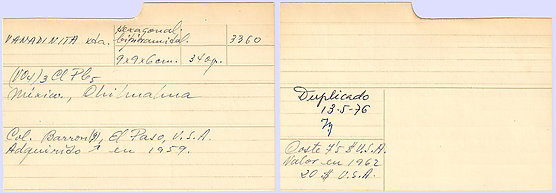 VANADINITA xda.
hexagonal,
bipiramidal.
3360
9x9x6cm. 340g.
(VO4)3 Cl Pb5
México, Chihuahua
Col. Barron, El Paso, U.S.A.
Adquirido ↑ en 1959.
Duplicado
13-5-76
Coste 7'5 $ U.S.A.
Valor en 1962
20 $ U.S.A.